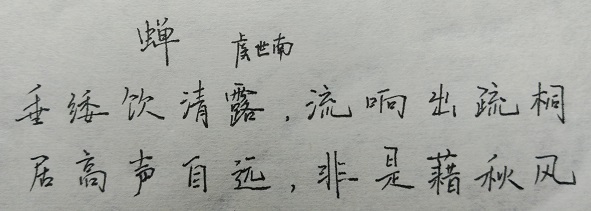 蝉 虞世南
垂緌饮清露，流响出疏桐
居高声自远，非是藉秋风